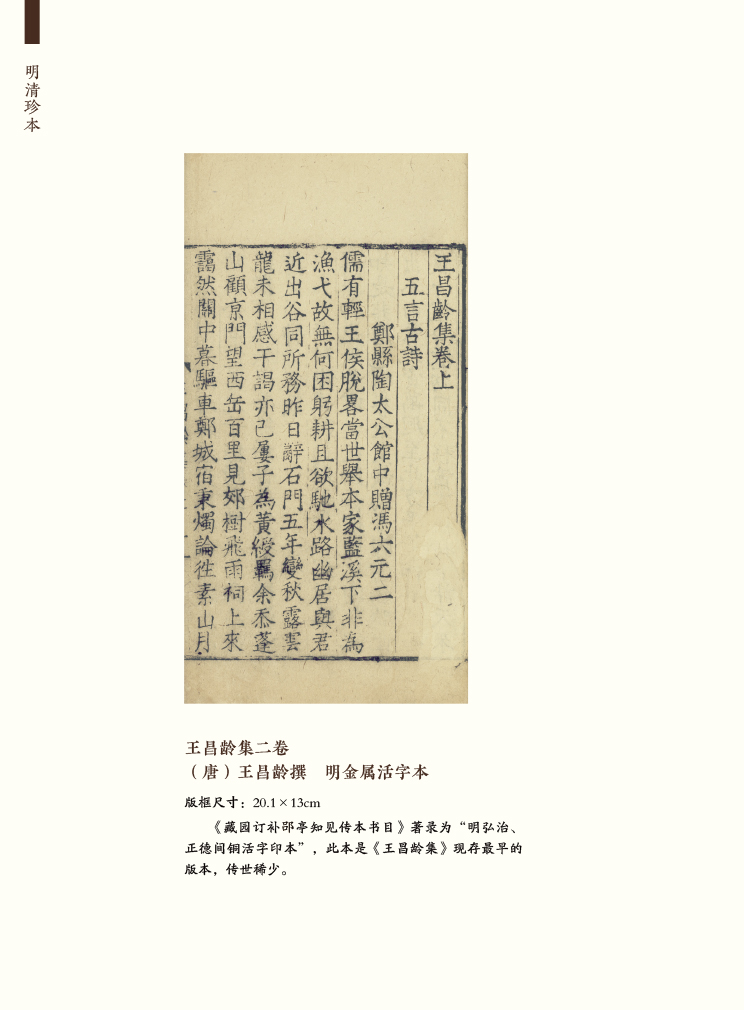 明清珍本
王昌齡集卷上
五言古詩
鄭縣陶太公館中贈馮六元二
儒有輕王侯脫畧當世舉本家藍溪下非為
漁弋故無何困躬耕且欲馳永路幽居與君
近出谷同所務昨日辭石門五年變秋露雲
龍未相感干謁亦已屢子為黃綬羈余忝蓬
山顧京門望西岳百里見郊樹飛雨祠上來
靄然關中暮驅車鄭城宿秉燭論徃素山月
王昌龄集二卷
（唐）王昌龄撰　明金属活字本
版框尺寸：20.1×13cm
《藏园订补郘亭知见传本书目》著录为“明弘治、
正德间铜活字印本”，此本是《王昌龄集》现存最早的
版本，传世稀少。